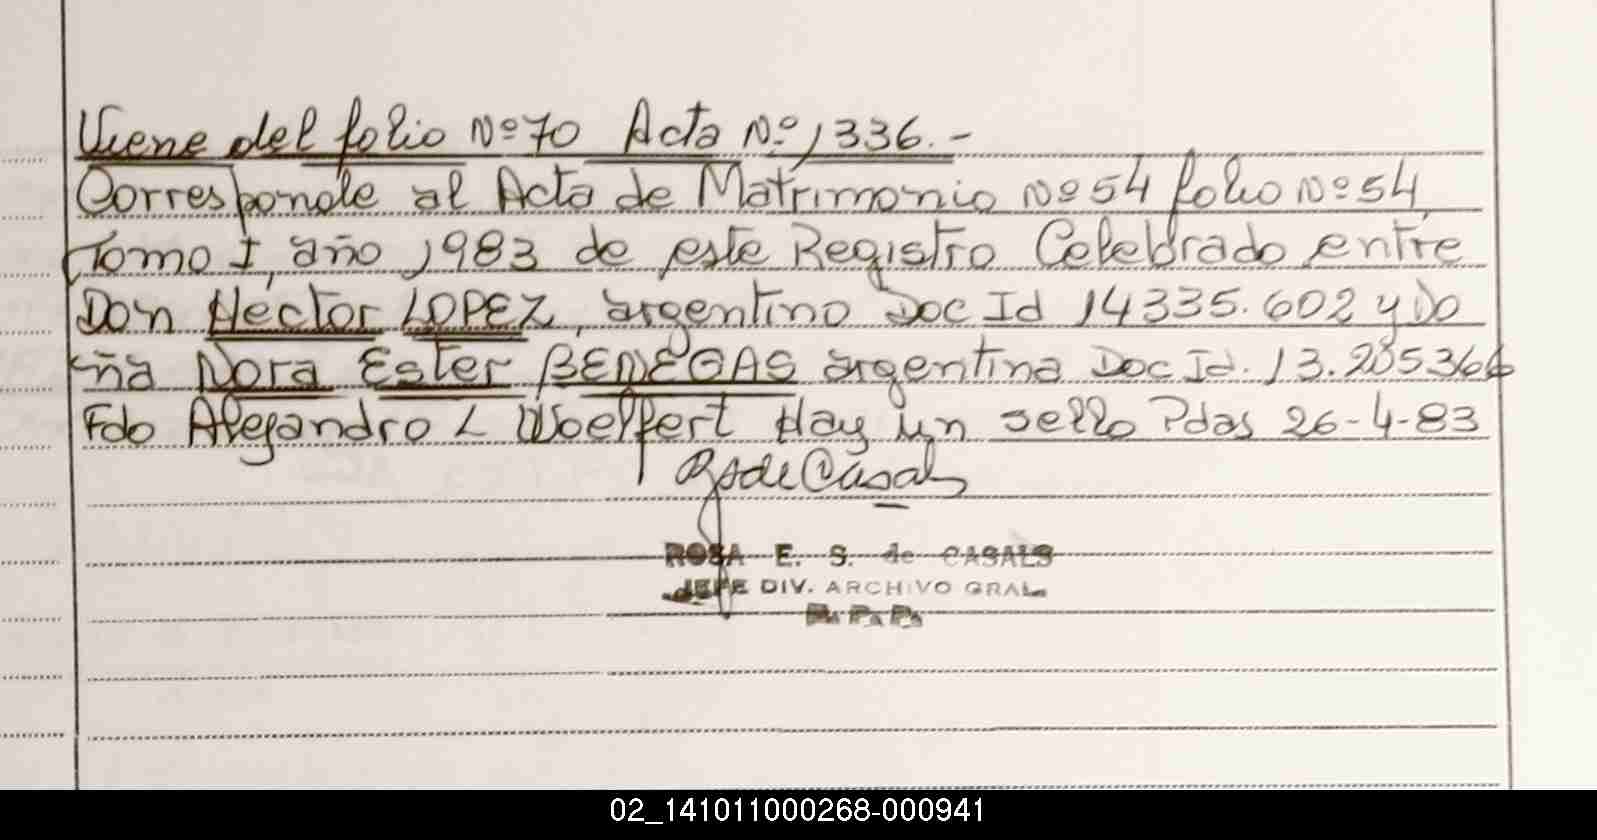 Viene del folio Nº 70 Acta Nº 1336.-
Corresponde al Acta de Matrimonio Nº 54 folio Nº 54
Tomo I, año 1983 de este Registro Celebrado entre
Don Héctor LOPEZ, argentino Doc Id 14335.602 y Do
ña Nora Ester BENEGAS argentina Doc Id. 13.285366
Fdo Alejandro L Woelfert Hay un sello Pdas 26-4-83
RSde Casals
ROSA E. S. de CASALS
JEFE DIV. ARCHIVO GRAL.
02_141011000268-000941